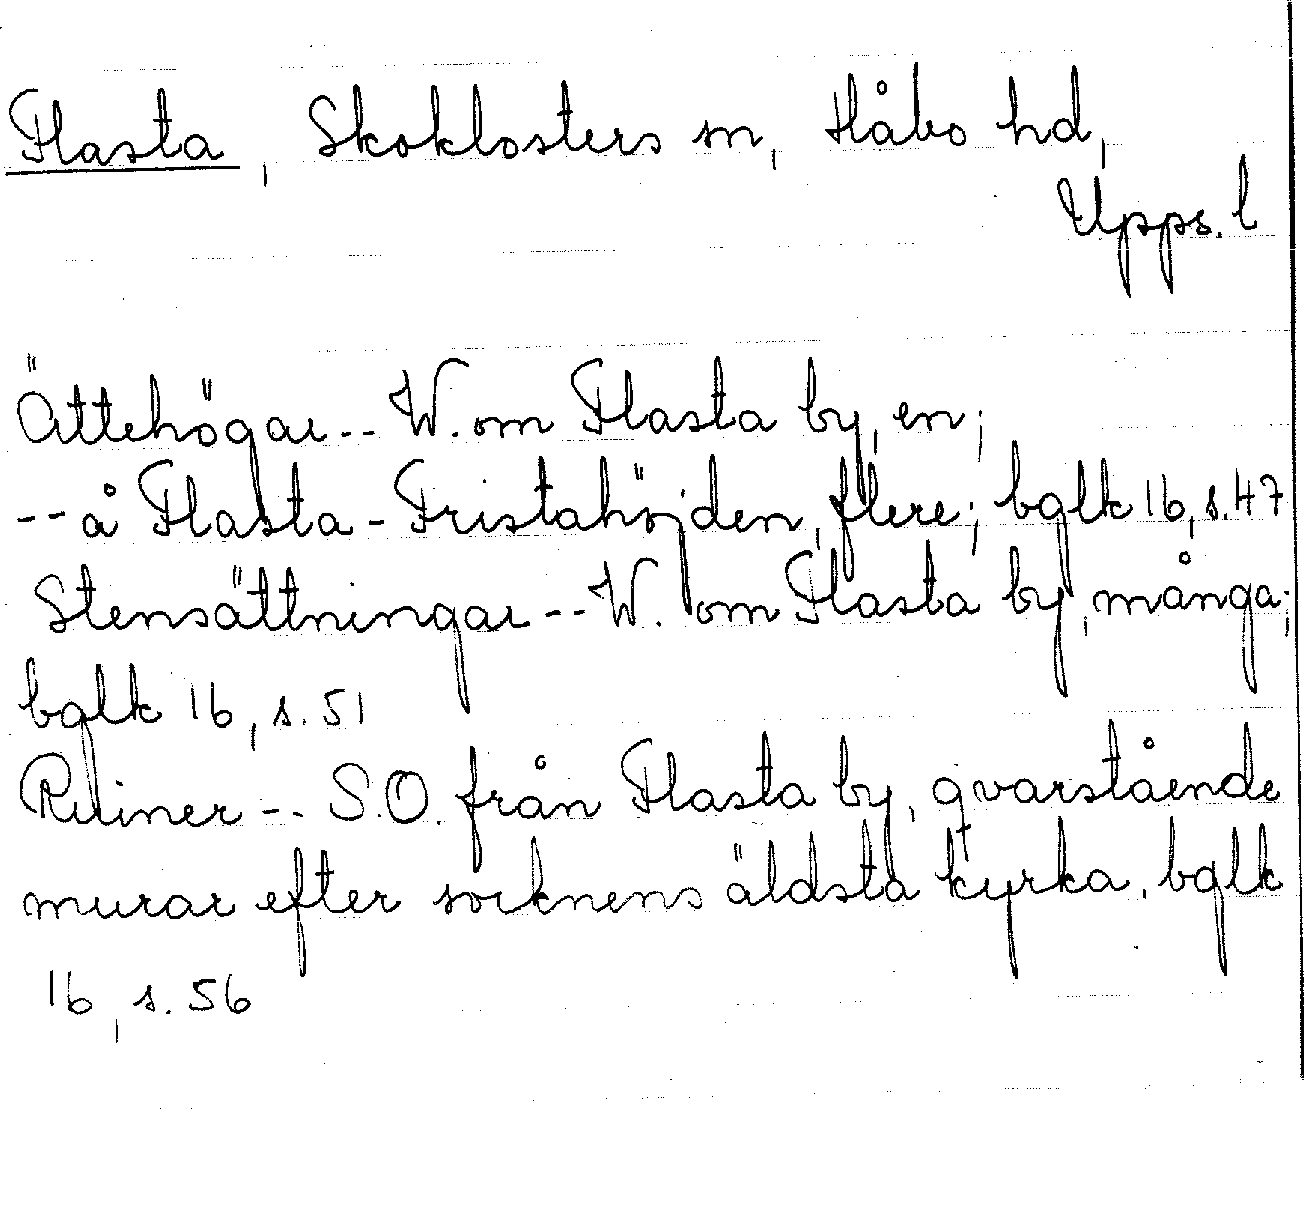 Flasta, Skoklosters sn, Håbo hd,
Upps. l
Ättehögar -- W. om Flasta by, en;
-- å Flasta-Fristahöjden, flere; bglk 16, s. 47
Stensättningar -- W. om Flasta by, många;
bglk 16, s. 51
Ruiner -- S.O. från Flasta by, qvarstående
murar efter socknens äldsta kyrka, bglk
16, s. 56